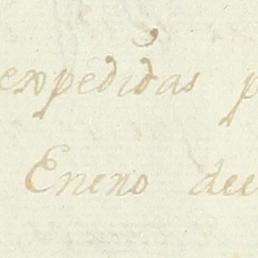 expedidas p
Enero de